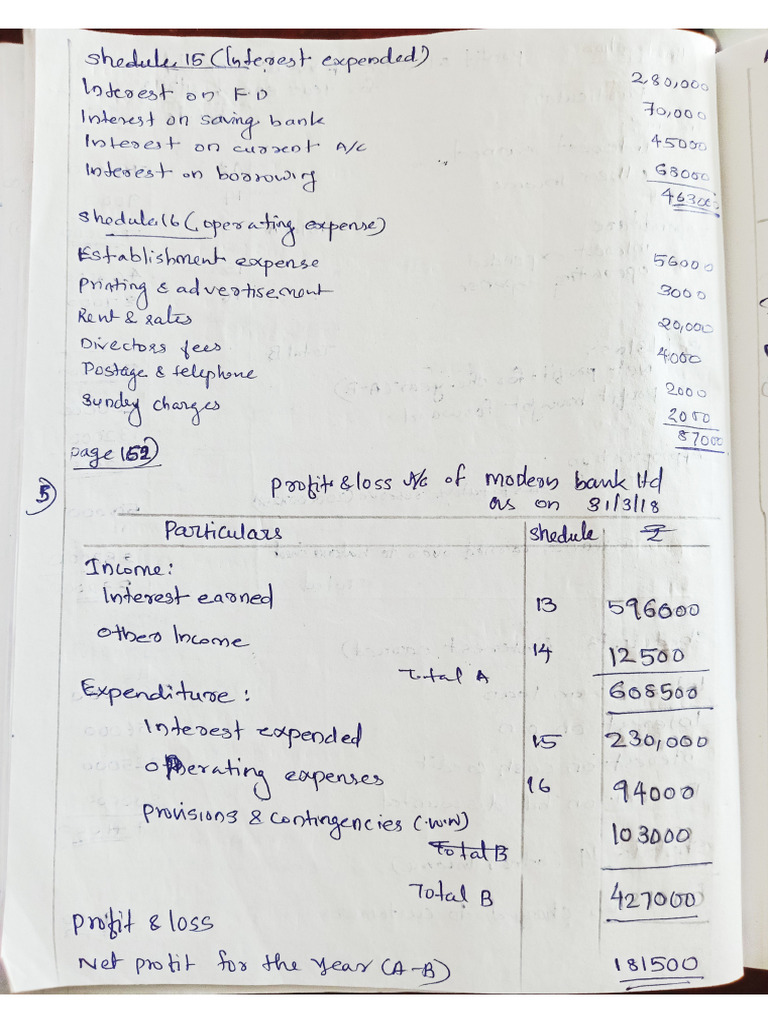 Shedule 15 (Interest expended)
Interest on FD 280,000
Interest on saving bank 70,000
Interest on current A/c 45000
Interest on borrowing 63000
463000
Shedule 16 (operating expense)
Establishment expense 56000
Printing & advertisement 3000
Rent & rates 20,000
Directors fees 4000
Postage & telephone 2000
Sundey charges 2000
87000
page 152)
5) profit & loss A/c of modern bank ltd
as on 31/3/18
Particulars Shedule ₹
Income:
Interest earned 13 596000
Other Income 14 12500
Total A 608500
Expenditure:
Interest expended 15 230,000
Operating expenses 16 94000
Provisions & Contingencies (W.W) 103000
Total B
Total B 427000
Profit & loss
Net profit for the year (A-B) 181500